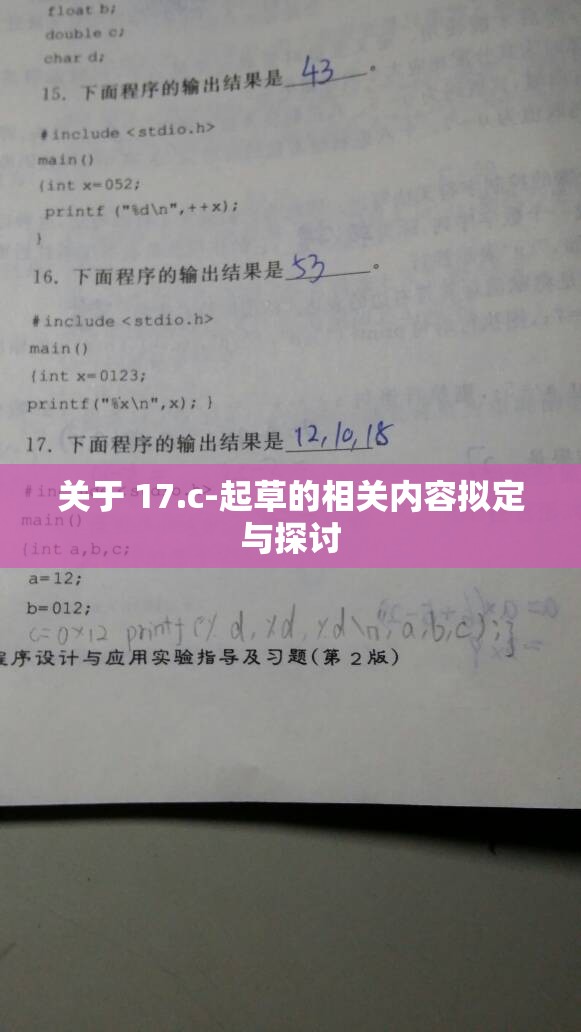 float b;
double c;
char d;
15. 下面程序的输出结果是 43 。
#include <stdio.h>
main()
{int x=052;
printf ("%d\n",++x);
}
16. 下面程序的输出结果是 53 。
#include <stdio.h>
main()
{int x=0123;
printf("%x\n",x); }
17. 下面程序的输出结果是 12,10,18
#in
关于 17.c-起草的相关内容拟定
与探讨
main()
{int a,b,c;
a=12;
b=012;
c=0x12 printf(% d, %d, %d\n", a,b,c);}
程序设计与应用实验指导及习题(第2版)